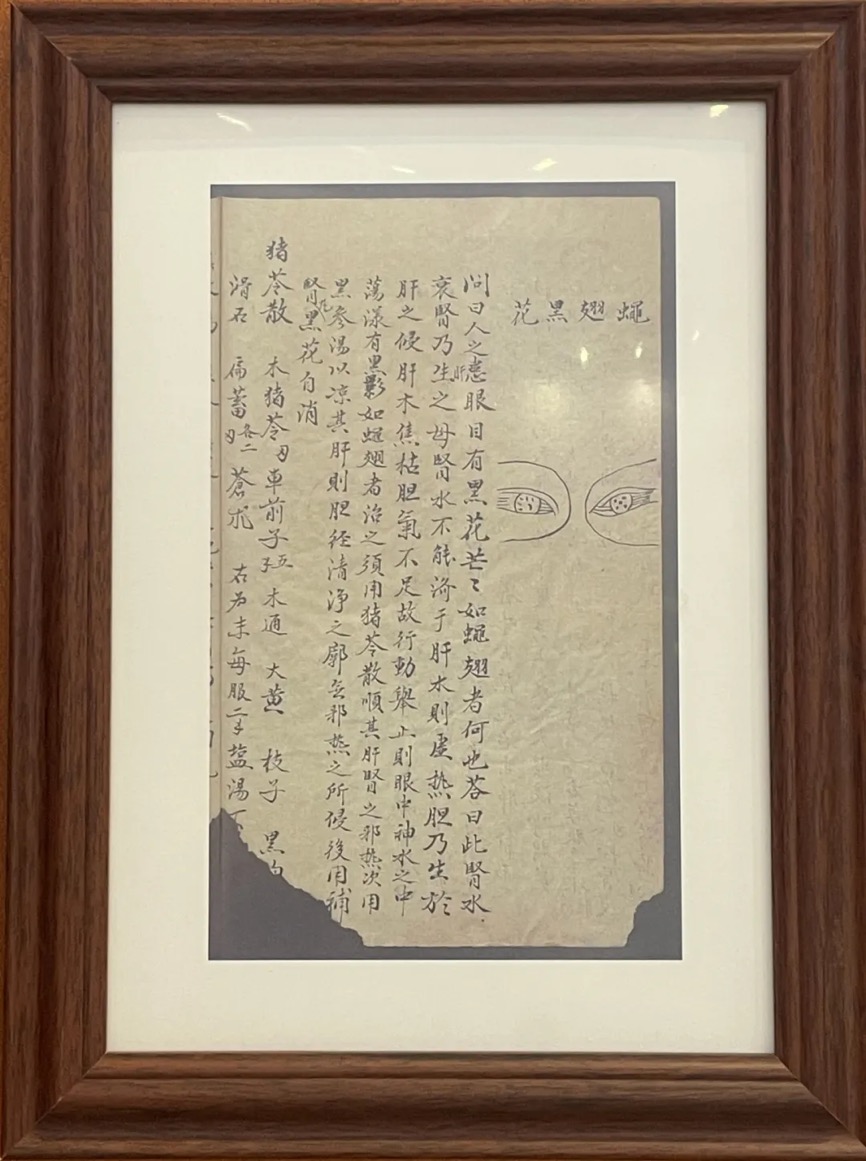 蠅翅黑花
問曰人之患眼目有黑花芒〻如蠅翅者何也答曰此腎水
衰腎乃肝生之母腎水不能済于肝木則虛热胆乃生於
肝之候肝木焦枯胆氣不足故行動舉止則眼中神水之中
荡漾有黑影如蠅翅者治之須用猪苓散順其肝腎之邪热次用
黑參湯以凉其肝則胆经清浄之廓无邪热之所侵後用補
腎丸黑花自消
猪苓散 木猪苓 車前子五 木通 大黄 枝子 黑
滑石 扁蓄各二 蒼朮 右为末每服二 盐湯下